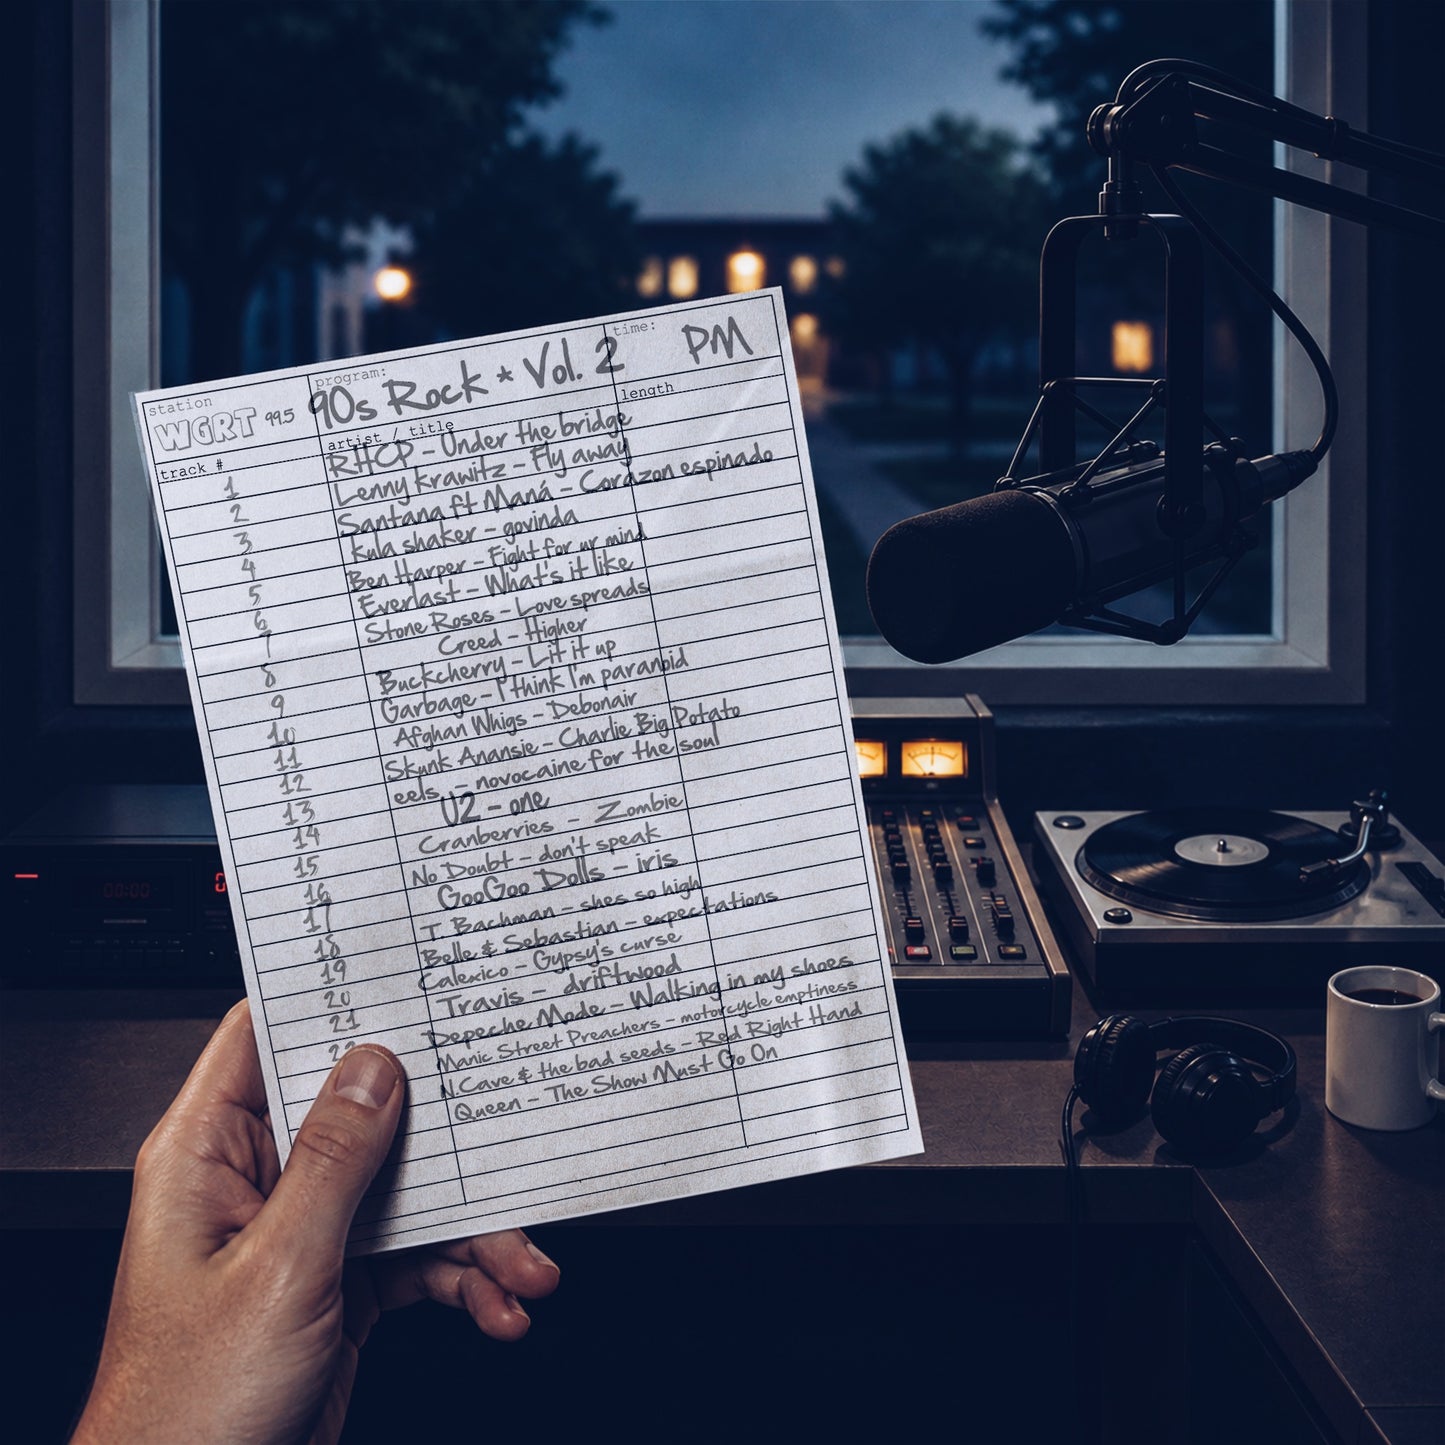 station
program:
time:
WGRT 99.5
90s Rock * Vol. 2
PM
track #
artist / title
length
1 RHCP - Under the bridge
2 Lenny Krawitz - Fly away
3 Santana ft Maná - Corazon espinado
4 kula shaker - govinda
5 Ben Harper - Fight for ur mind
6 Everlast - What's it like
7 Stone Roses - Love spreads
8 Creed - Higher
9 Buckcherry - Lit it up
10 Garbage - I think I'm paranoid
11 Afghan Whigs - Debonair
12 Skunk Anansie - Charlie Big Potato
13 eels - novocaine for the soul
14 U2 - one
15 Cranberries - Zombie
16 No Doubt - don't speak
17 GooGoo Dolls - iris
18 T. Bachman - shes so high
19 Belle & Sebastian - expectations
20 Calexico - Gypsy's curse
21 Travis - driftwood
22 Depeche Mode - Walking in my shoes
Manic Street Preachers - motorcycle emptiness
N.Cave & the bad seeds - Red Right Hand
Queen - The Show Must Go On
00:00